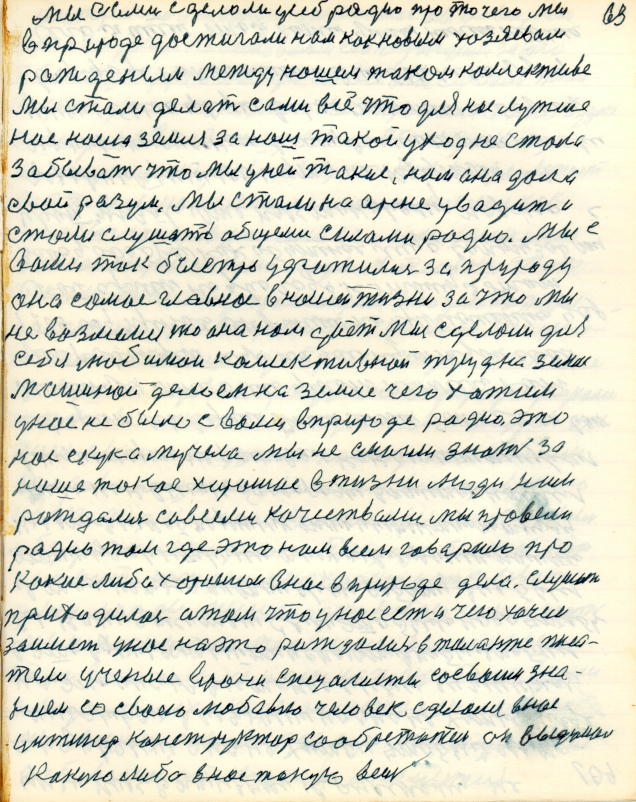 63
мы сами сделали усеб радио про то чего мы
в природе достигали нам как новым хозяевам
рожденным между нашем таком коллективе
мы стали делат сами всё что для нас лутше
нас наша земля за наш такой уход не стала
забыват что мы у ней такие, нам она дала
свой разум. мы стали на арене увадит и
стали слушать общеми силами радио. Мы с
вами так быстро ухватилися за природу
она самое главное в нашей жизни за что мы
не возмемся то она нам даёт мы сделали для
себя любимои коллективной труд на земле
машиной делаем на земле чего хотим
унас не было с вами в природе радио, это
нас скука мучела мы не смогли знат за
наше такое хорошие в жизни люди нам
рождался совсеми качествами, мы провели
радио там где это нам всем говарило про
какие либо хорошии внас в природе дела. слушат
приходилос о том что унас ест и чего хочем
заимет унас на это рождалися в таланте писа-
тели ученые врачи спецалисты со своим зна-
нием со своею любовью человек сделался внас
инжинер конструктор изобретател он выдумал
какую либо внас такую вещ